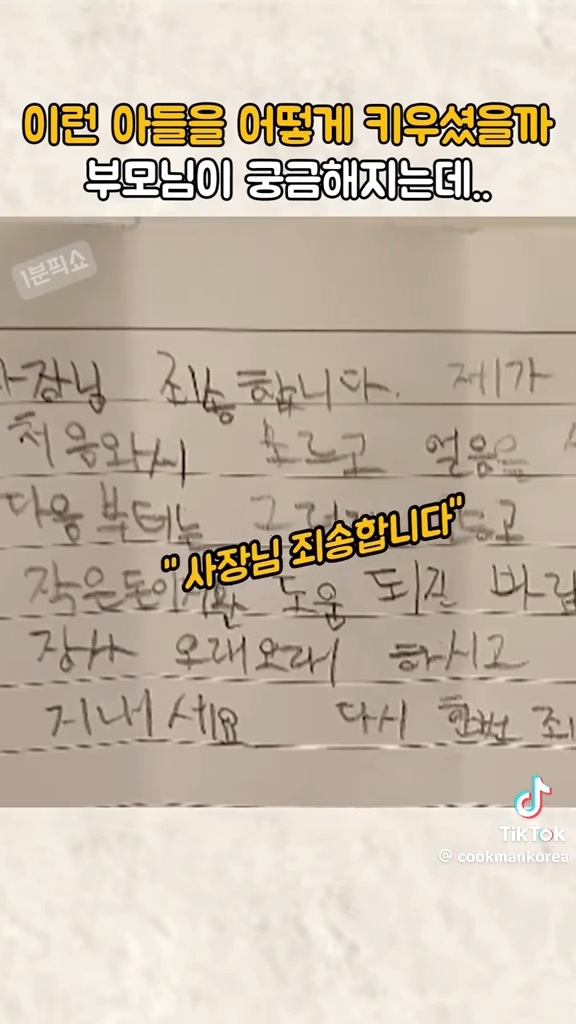 이런 아들을 어떻게 키우셨을까
부모님이 궁금해지는데..
1분픽쇼
사장님 죄송합니다. 제가
처음와서 모르고 얼음을
다음부터는
"사장님 죄송합니다"
작은돈이지만 도움 되길 바랍
장사 오래오래 하시고
지내세요 다시 한번 죄
TikTok
@cookmankorea